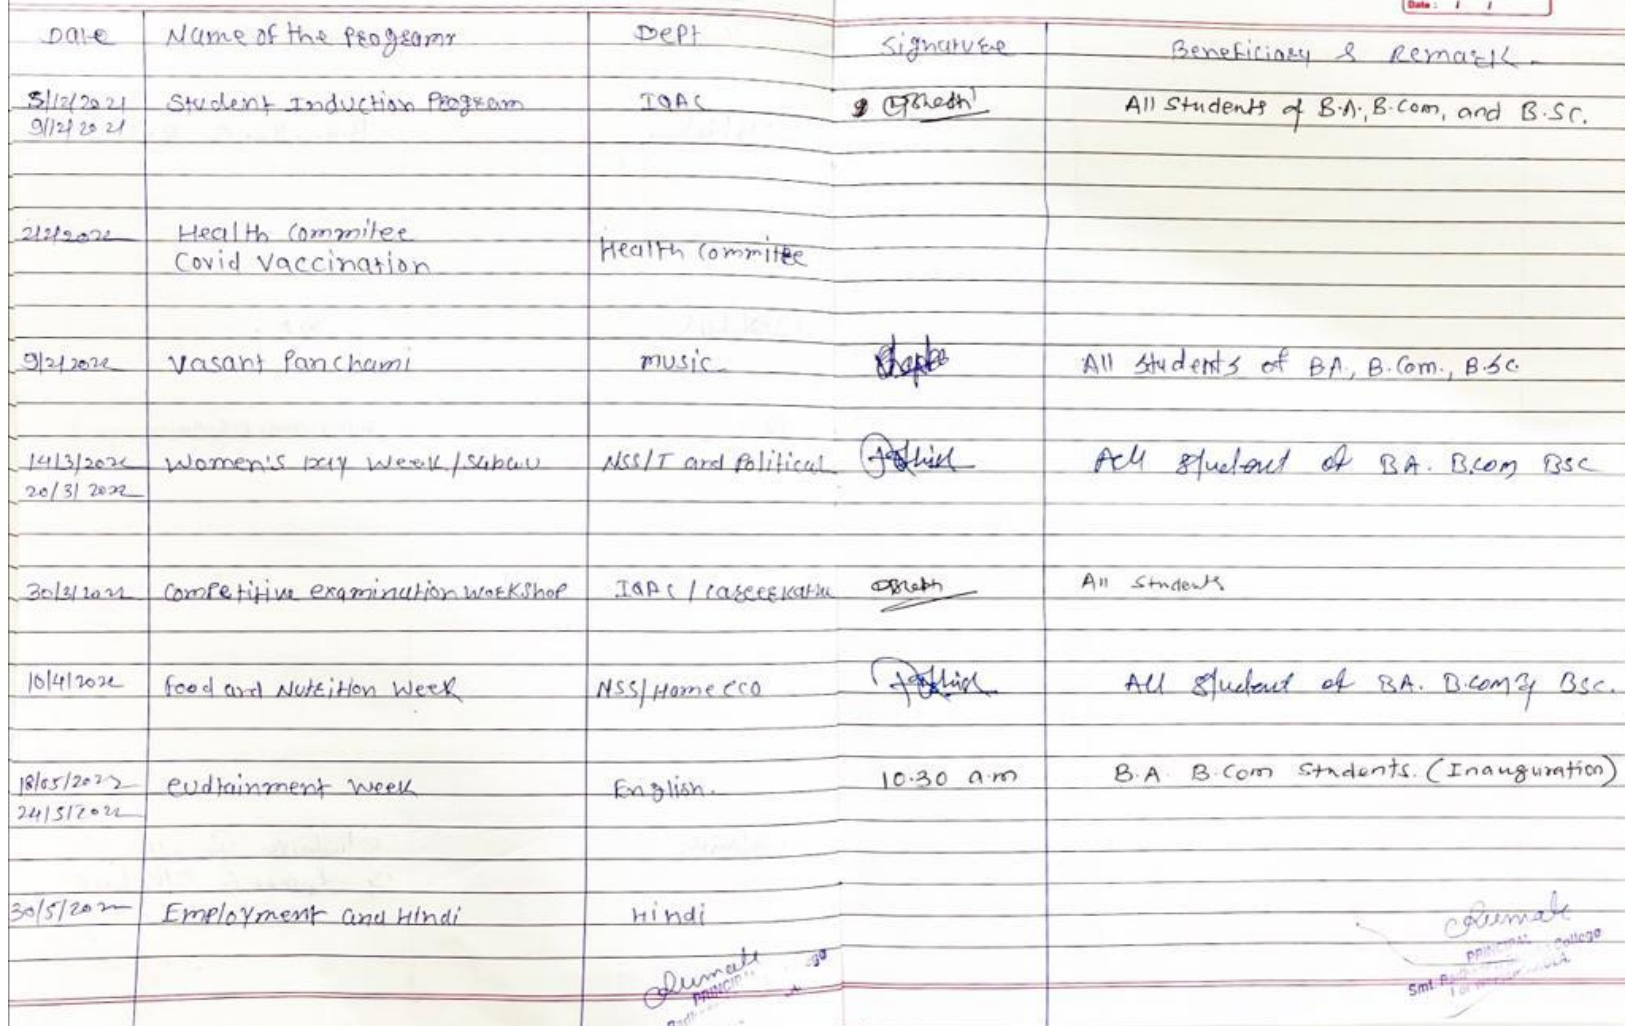 Date : / /
Date Name of the Programr Dept Signature Beneficiary & Remark.
5/12/2021 Student Induction Program IQAC All Students of B.A., B.Com, and B.Sc.
9/12/2021
2/2/2022 Health Commitee Health Committee
Covid Vaccination
9/2/2022 Vasant Panchami music All Students of BA, B.Com., B.Sc.
14/3/2022 Women's Day Week / NSS/T and Political All Student of BA. B.com BSC
20/3/2022
30/3/2022 Competitive examination Workshop IQAC / All Students
10/4/2022 Food and Nutrition Week NSS/Home eco All Student of BA. B.com & BSc.
18/05/2022 eudtainment week English. 10.30 a.m B.A. B.Com Students. (Inauguration)
24/5/2022
30/5/2022 Employment and Hindi Hindi
PRINCIPAL College
Smt.